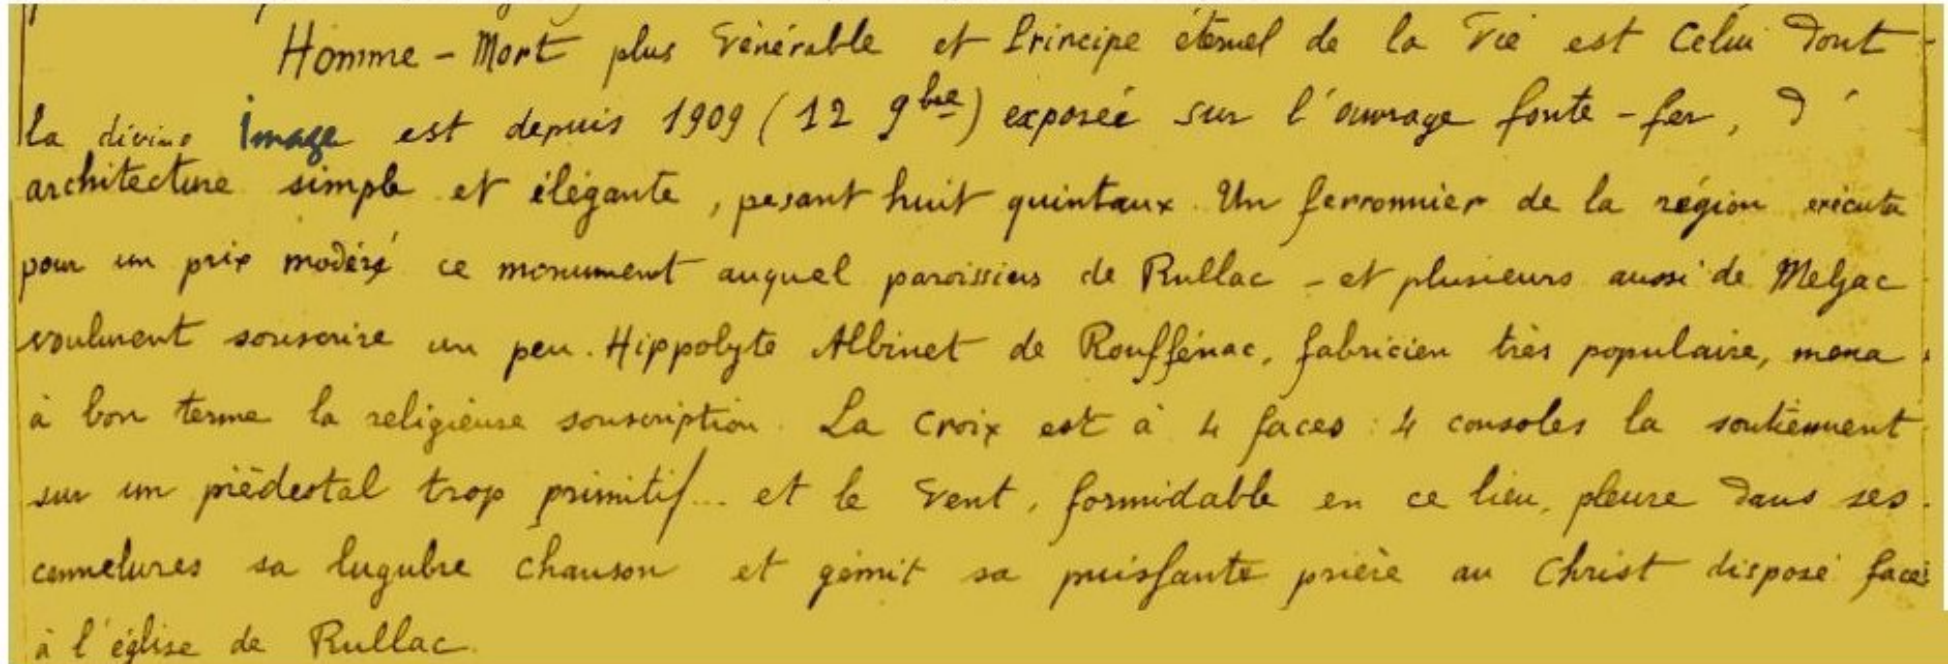 Homme - Mort plus Vénérable et Principe éternel de la Vie est Celui dont
la divine Image est depuis 1909 (12 9bre) exposée sur l'ouvrage fonte - fer, d'
architecture simple et élégante, pesant huit quintaux. Un ferronnier de la région exécuta
pour un prix modéré ce monument auquel paroissiens de Rullac - et plusieurs aussi de Meljac
voulurent souscrire un peu. Hippolyte Albinet de Rouffénac, fabricien très populaire, mena
à bon terme la religieuse souscription. La Croix est à 4 faces : 4 consoles la soutiennent
sur un piédestal trop primitif... et le Vent, formidable en ce lieu, pleure dans ses
cannelures sa lugubre chanson et gémit sa puissante prière au Christ disposé face
à l'église de Rullac.